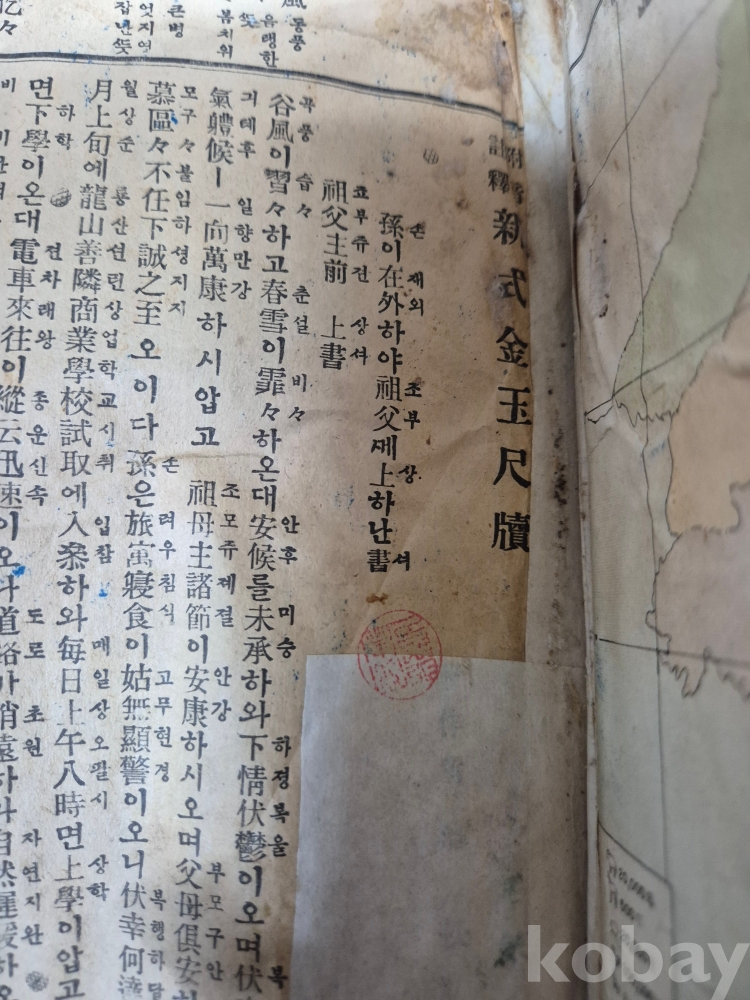 註釋 新式金玉尺牘
손 재외 조부 상 셔
孫이在外하야祖父ᄭᅦ上하난書
죠부쥬전 상셔
祖父主前 上書
곡풍 습々 춘설 비々 안후 미승 하졍복울 복
谷風이習々하고春雪이霏々하온대安候를未承하와下情伏鬱이오며伏
긔톄후 일향만강 조모쥬졔졀 안강 부모구안
氣軆候ㅣ一向萬康하시압고 祖母主諸節이安康하시오며父母俱安
모구々불임하셩지지 손 려우침식 고무현경 복행하달
慕區々不任下誠之至오이다孫은旅萬寢食이姑無顯警이오니伏幸何
월상순 룡산선린상업학교시취 입참 매일상오팔시 상학
月上旬에龍山善隣商業學校試取에入叅하와每日上午八時면上學이압고
하학 젼차래왕 종운신속 도로 초원 자연지완
면下學이온대電車來往이縱云迅速이오나道路가稍遠하나自然遲緩하오
kobay